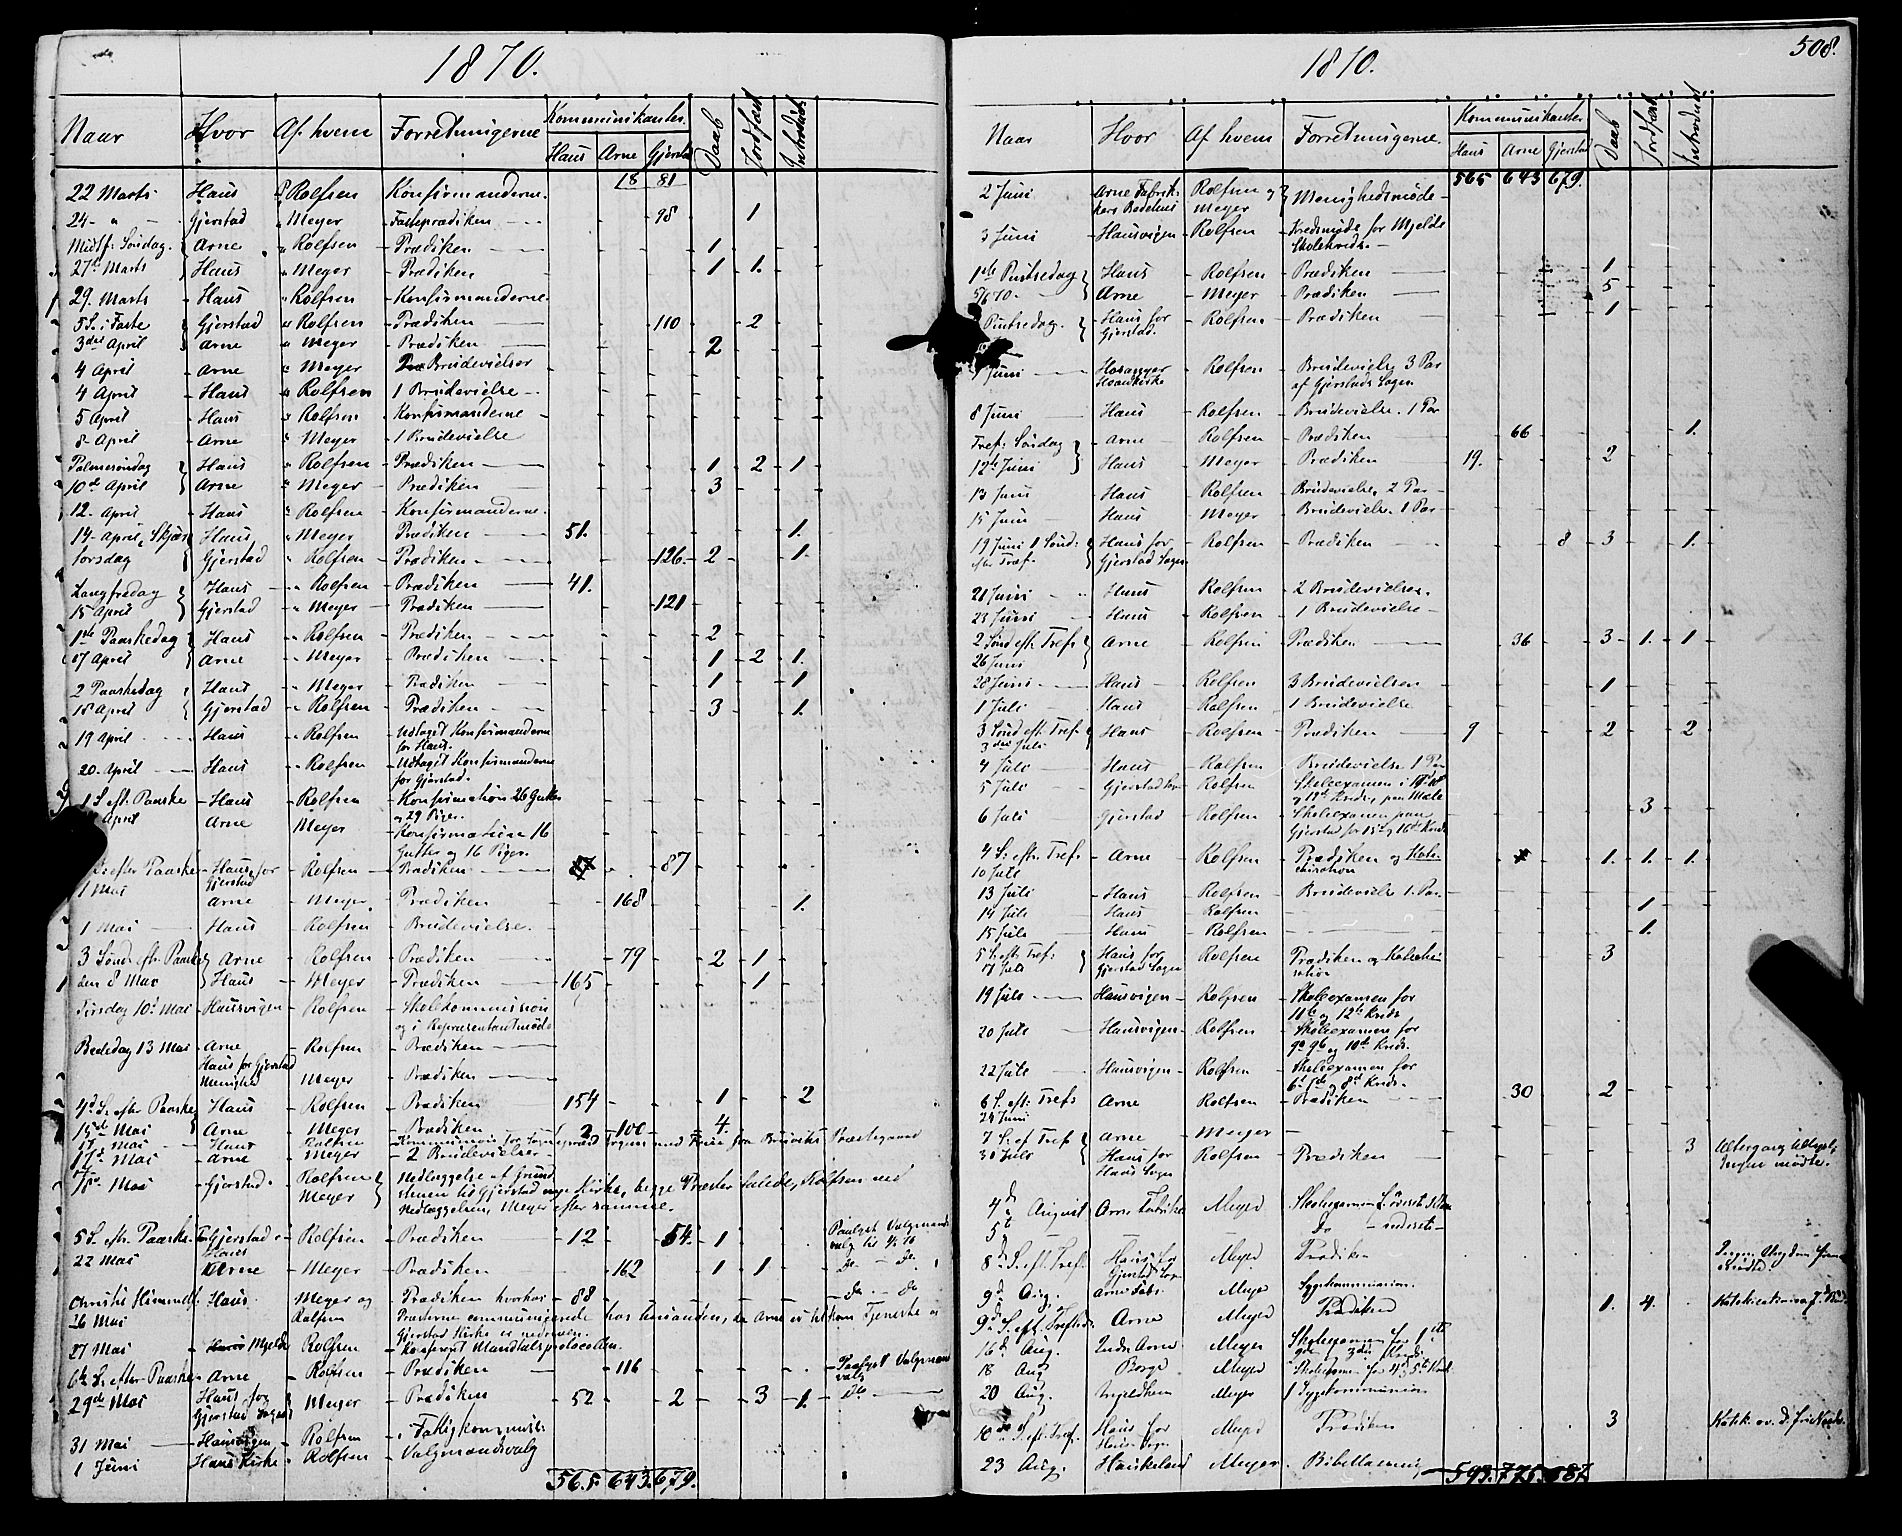 1870.
Naar Hvor Af hvem Forretningerne Kommunikanter. Daab Jordfæst Introduct
Haus Arne Gjerstad
18 81
22 Marts Haus Rolfsen Konfirmanderne.
24 - " - Gjerstad " Meyer - Fasteprædiken 98 1
Midtf: Søndag. Arne " Rolfsen - Prædiken 1
27de Marts Haus " Meyer - Prædiken 1 1.
29. Marts Haus " Rolfsen - Konfirmanderne.
5 S. i Faste Gjerstad " Rolfsen - Prædiken 110 2
3die April Arne " Meyer - Prædiken 2
4 April Arne " Meyer Brudevielser
4 April Haus " Rolfsen 1 Brudevielse
5 April Haus " Rolfsen - Konfirmanderne
8 April Arne " Meyer - 1 Brudevielse
Palmesøndag Haus " Rolfsen Prædiken 1 2 1
10de April Arne " Meyer - Prædiken 3
12. April Haus " Rolfsen - Konfirmanderne.
14 - April, Skjær Haus " Meyer - Prædiken 51. 1.
torsdag Gjerstad " Rolfsen - Prædiken 126 2 1.
Langfredag Haus " Rolfsen - Prædiken 41.
15 April Gjerstad " Meyer - Prædiken 121
1ste Paaskedag Haus " Rolfsen - Prædiken 2
17 April Arne " Meyer - Prædiken 1 2 1.
2 Paaskedag Haus " Meyer - Prædiken 1 1
18 April Gjerstad " Rolfsen - Prædiken 3 1.
19 April Haus " Rolfsen - Udtaget Konfirmanderne
for Haus.
20. April Haus " Rolfsen - Udtaget Konfirmanderne
for Gjerstad.
1 S. eft. Paaske - Haus Rolfsen - Konfirmation 26 Gutter
og 29 Piger.
April Arne Meyer - Konfirmation 16
Gutter og 16 Piger.
efter Paaske - Haus for Gjerstad - Rolfsen - Prædiken 87
1 Mai Arne - Meyer - Prædiken 168 1.
1 Mai Haus - Rolfsen - Brudevielse.
3 Sønd. eft. Paaske Arne - Rolfsen - Prædiken 79 2 1
den 8 Mai Haus - Meyer - Prædiken 165 1
Tirsdag 10. Mai - Hausvigen - Rolfsen - Skolkommission
og i Repræsentantmøde
Bededag 13 Mai - Arne - Rolfsen - Prædiken
Haus for Gjerstad
Menighed Meyer - Prædiken
4de S. efter Paaske Haus - Rolfsen - Prædiken 154 1 2
15de Mai Arne - Meyer - Prædiken 2 100 4.
17 Mai Haus - Rolfsen
17 Mai - Arne - Meyer - 2 Brudevielser
Mai - Gjerstad - Rolfsen Meyer Nedlæggelse af Grund
stenen til Gjerstad nye Kirke, begge Præster talede, Rolfsen ved
Nedlæggelsen, Meyer efter samme.
5 S. eft. Paaske - Gjerstad - Rolfsen - Prædiken 12 54. 1 Paalyst Valgmands
valg til
22 Mai Arne - Meyer - Prædiken 162 1 1 do - do
Christi Himmelf. Haus. Meyer og - Prædiken hvorhos 88 do - do
26 Mai Rolfsen
Gjerstad Kirke er nedreven.
27 Mai Mjelde Rolfsen - Konfereret Mandtalsprotocollen.
6te S. efter Paaske - Arne - Rolfsen - Prædiken 116 Paalyst Valgmands
valg
29de Mai Haus for - Meyer - Prædiken 52 2 3 1. do
Gjerstad Sogn
31 Mai - Hausvigen - Rolfsen - i Fattigkommis:
1 Juni Haus Kirke - Rolfsen - Valgmandsvalg
565. 643. 679.

1870. 508.
Naar Hvor Af hvem Forretningerne. Kommunikanter Daab Jordfæst Introduct
Haus Arne Gjerstad
565 643 679.
2 Juni Arne Fabrik- Rolfsen og Menighedsmøde
kers Bedehus Meyer
3 Juni - Hausvigen - Rolfsen - Kredsmøde for Mjelde
Skolekreds.
1ste Pintsedag Haus Rolfsen - Prædiken 1
5/6 70. Arne - Meyer - Prædiken 5
Pintsedag. Haus for Gjerstad. - Rolfsen - Prædiken 1
Juni Hosanger Rolfsen - Brudevielse 3 Par
Hovedkirke af Gjerstads Sogn
8 Juni Haus - Rolfsen - Brudevielse. 1 Par
Tref. Søndag Arne - Rolfsen - Prædiken 66 1.
12te Juni Haus - Meyer - Prædiken 19. 2
13 Juni Haus - Rolfsen - Brudevielse 2 Par
15 Juni Haus - Meyer - Brudevielse 1 Par
19 Juni 1 Sønd: Haus for - Rolfsen - Prædiken 8 3 1.
eft. Tref. Gjerstad Sogn
21 Juni Haus Rolfsen 2 Brudevielser.
23 Juni Haus - Rolfsen 1 Brudevielse
2 Sønd eft. Tref. Arne - Rolfsen - Prædiken 36 3 1. 1
26 Juni
28 Juni Haus Rolfsen - 3 Brudevielser 1
1 Juli - Haus - Rolfsen - 1 Brudevielse
3 Sønd eft. Tref. Haus - Rolfsen - Prædiken 9 2 2
3die Juli
4 Juli - Haus - Rolfsen Brudevielse 1 Par
5 Juli - Gjerstad - Rolfsen - Skoleexamen i
6 Juli Gjerstad - Rolfsen - Skoleexamen paa 3
Gjerstad for 15 og 16de Kreds
4 S. eft. Tref. - Arne - Rolfsen - Prædiken og Kate- 1. 1. 1.
10 Juli chisation
13 Juli - Haus - Rolfsen - Brudevielse 1. Par.
14 Juli - Haus - Rolfsen 1.
15 Juli - Haus - Rolfsen 1.
5 S. eft. Tref. Haus for - Rolfsen Prædiken og Katechi- 3
17 Juli Gjerstad Sogn sation
19 Juli - Hausvigen - Rolfsen - Skoleexamen for
11te og 12te Kreds
20 Juli - Hausvigen - Rolfsen - Skoleexamen for
9a 9b og 10de Kreds.
22 Juli - Hausvigen - Rolfsen - Skoleexamen for
8de Kreds.
6 S. eft. Tref. Arne - Rolfsen - Prædiken 30 2
7 S. ef. Tref. Arne - Meyer -
31 Juli Haus for Rolfsen - Prædiken 3 Altergang tillyst,
Haus Sogn Ingen mødte.
4de August Arne Fabrikker Meyer Skoleexamen
5te Do
8de S. eft. Tref. Haus for Meyer Prædiken
Gjerstad Sogn
9de Aug. Arne Fabr. Meyer Sygekommunion.
9de S. eft. Trefted. Arne Meyer Prædiken 1. 4.
16de Aug. Indre Arne Meyer Skoleexamen for 1ste
2den 3die Kreds
18 Aug Borge Meyer Skoleexamen for 4de 5te Kreds
20 Aug. Mjeldheim Meyer 1 Sygekommunion
10de S. eft. Tref. Haus for Meyer Prædiken 3
Haus Sogn
23 Aug. Haukeland Meyer Bibellæsning
593. 775. 687.